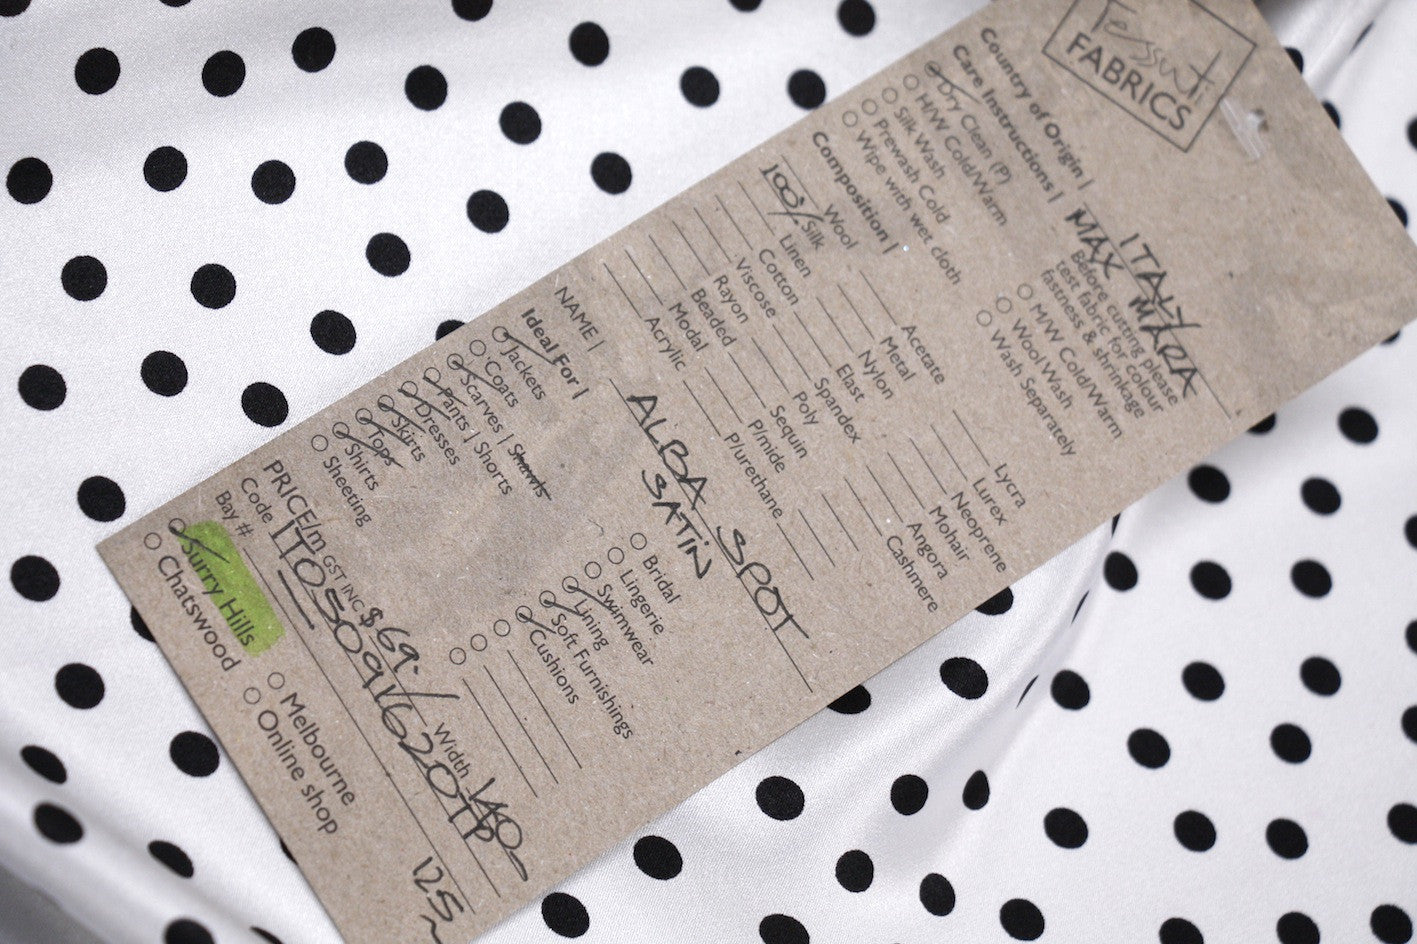 Tessuti
FABRICS
Country of Origin | ITALY
MAX MARA
Care Instructions |
Dry Clean (P)
H/W Cold/Warm
Silk Wash
Prewash Cold
Wipe with wet cloth
Before cutting please
test fabric for colour
fastness & shrinkage
M/W Cold/Warm
Wool Wash
Wash Separately
Composition |
Wool
100% Silk
Linen
Cotton
Viscose
Rayon
Beaded
Modal
Acrylic
Acetate
Metal
Nylon
Elast
Spandex
Poly
Sequin
P/mide
P/urethane
Lycra
Lurex
Neoprene
Mohair
Angora
Cashmere
NAME | ALBA SPOT
SATIN
Ideal For |
Jackets
Coats
Scarves | Shawls
Pants | Shorts
Dresses
Skirts
Tops
Shirts
Sheeting
Bridal
Lingerie
Swimwear
Lining
Soft Furnishings
Cushions
PRICE/m GST INC $69.- Width 140
Code ITO5091620TP
Bay # 125
Surry Hills
Chatswood
Melbourne
Online shop